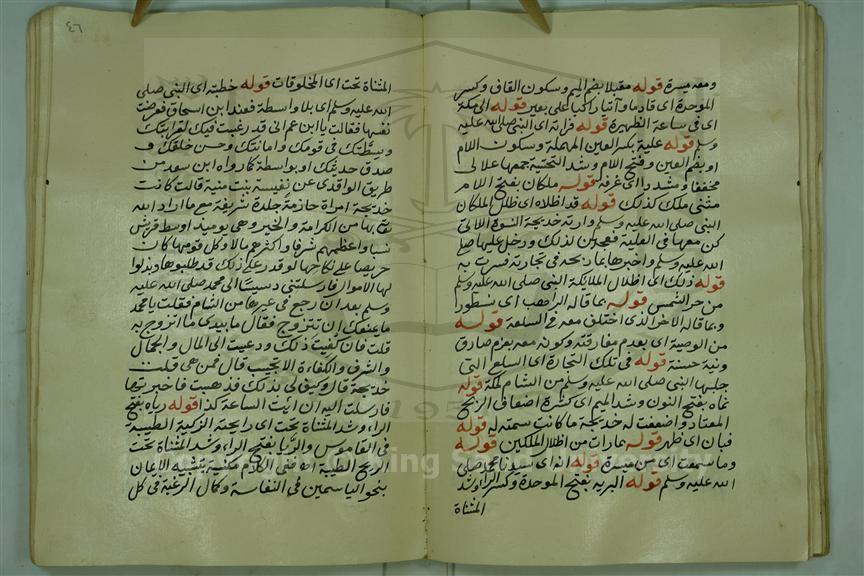 ومعه ميسرة قوله مقبلا بضم الميم وسكون القاف وكسر
الموحدة اي قادما وآتيا راكبا على بعير قوله الى مكة
اي في ساعة الظهيرة قوله فراته اي النبي صلى الله عليه
وسلم قوله علية بكسر العين المهملة وسكون اللام
او بضم العين وفتح اللام وشد التحتية جمعها علالي
مخففا ومشددا اي غرفة قوله ملكان بفتح اللام
مثنى ملك كذلك قوله قد اظلاه اي ظلل الملكان
النبي صلى الله عليه وسلم وارته خديجة النسوة اللاتي
كن معها في العلية فعجبن لذلك ودخل عليها صلى
الله عليه وسلم واخبرها بما ربحه في تجارته فسرت به
قوله ذلك اي اظلال الملايكة النبي صلى الله عليه وسلم
من حر الشمس قوله بما قاله الراهب اي نسطورا
وبما قاله الاخر الذي اختلف معه في السلعة قوله
من الوصية اي بعدم مفارقته وكونه معه بعزم صادق
ونية حسنة قوله في تلك التجارة اي السلع التي
جلبها النبي صلى الله عليه وسلم من الشام لمكة قوله
نماه بفتح النون وشد الميم اي كثره اضعاف الربح
المعتاد واضعفت له خديجة ما كانت سمته له قوله
فبان اي ظهر قوله بما رات من اظلال الملكين قوله
وما سمعت اي من ميسرة قوله انه اي سيدنا محمد صلى
الله عليه وسلم قوله البريه بفتح الموحدة وكسر الراء وشد
المثناة
٤٦
المثناة تحت اي المخلوقات قوله خطبته اي النبي صلى
الله عليه وسلم اي بلا واسطة فعند ابن اسحاق فعرضت
نفسها فقالت يا ابن عم اني قد رغبت فيك لقرابتك
وسطتك في قومك وامانتك وحسن خلقك و
صدق حديثك او بواسطة كما رواه ابن سعد من
طريق الواقدي عن نفيسة بنت منية قالت كانت
خديجة امراة حازمة جلدة شريفة مع ما اراد الله
بها من الكرامة والخير وهي يوميد اوسط قريش
نسبا واعظمهم شرفا واكثرهم مالا وكل قومها كان
حريصا على نكاحها لو قدر على ذلك قد طلبوها وبذلوا
لها الاموال فارسلتني دسيسا الى محمد صلى الله عليه
وسلم بعد ان رجع في عيرها من الشام فقلت يا محمد
ما يمنعك ان تتزوج فقال ما بيدي ما اتزوج به
قلت فان كفيت ذلك ودعيت الى المال والجمال
والشرف والكفاءة الا تجيب قال فمن هي قلت
خديجة قال وكيف لي بذلك فذهبت فاخبرتها
فارسلت اليه ان ائت الساعة كذا قوله رياه بفتح
الراء وشد المثناة تحت اي رايحته الزكية الطيبة
في القاموس والريا بفتح الراء وشد المثناة تحت
الريح الطيبة اه ففي الكلام مكنية بتشبيه الايمان
بنحو الياسمين في النفاسة وكمال الرغبة في كل